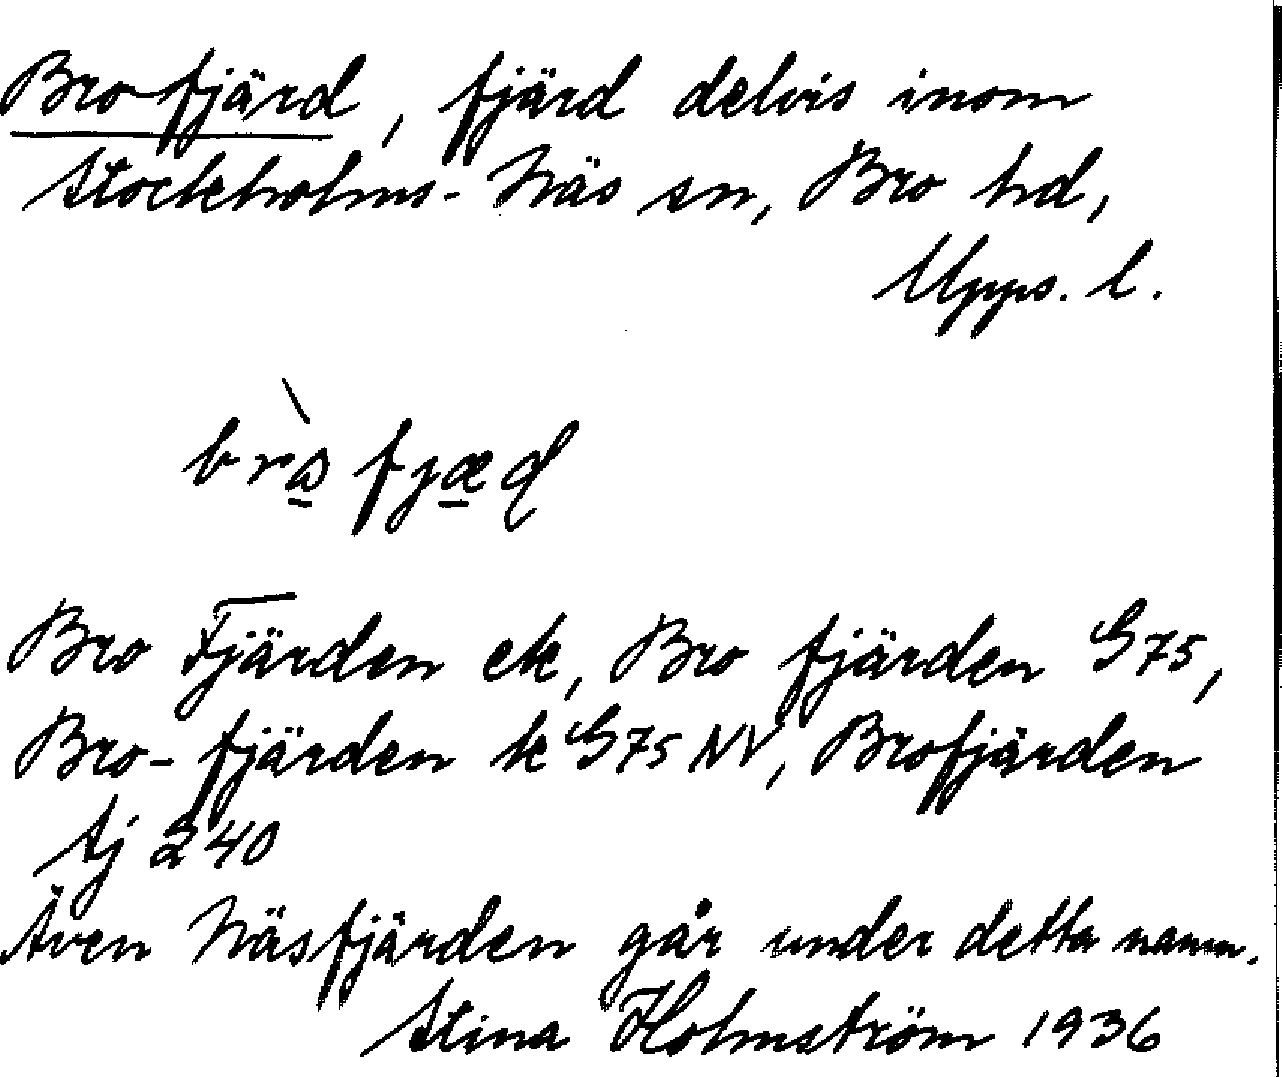 Brofjärd, fjärd delvis inom
Stockholms-Näs sn, Bro hd,
Upps. l.
Bro Fjärden ek, Bro fjärden G75,
Bro-fjärden k G75 NV, Brofjärden
tj 240
Även Näsfjärden går under detta namn.
Stina Holmström 1936